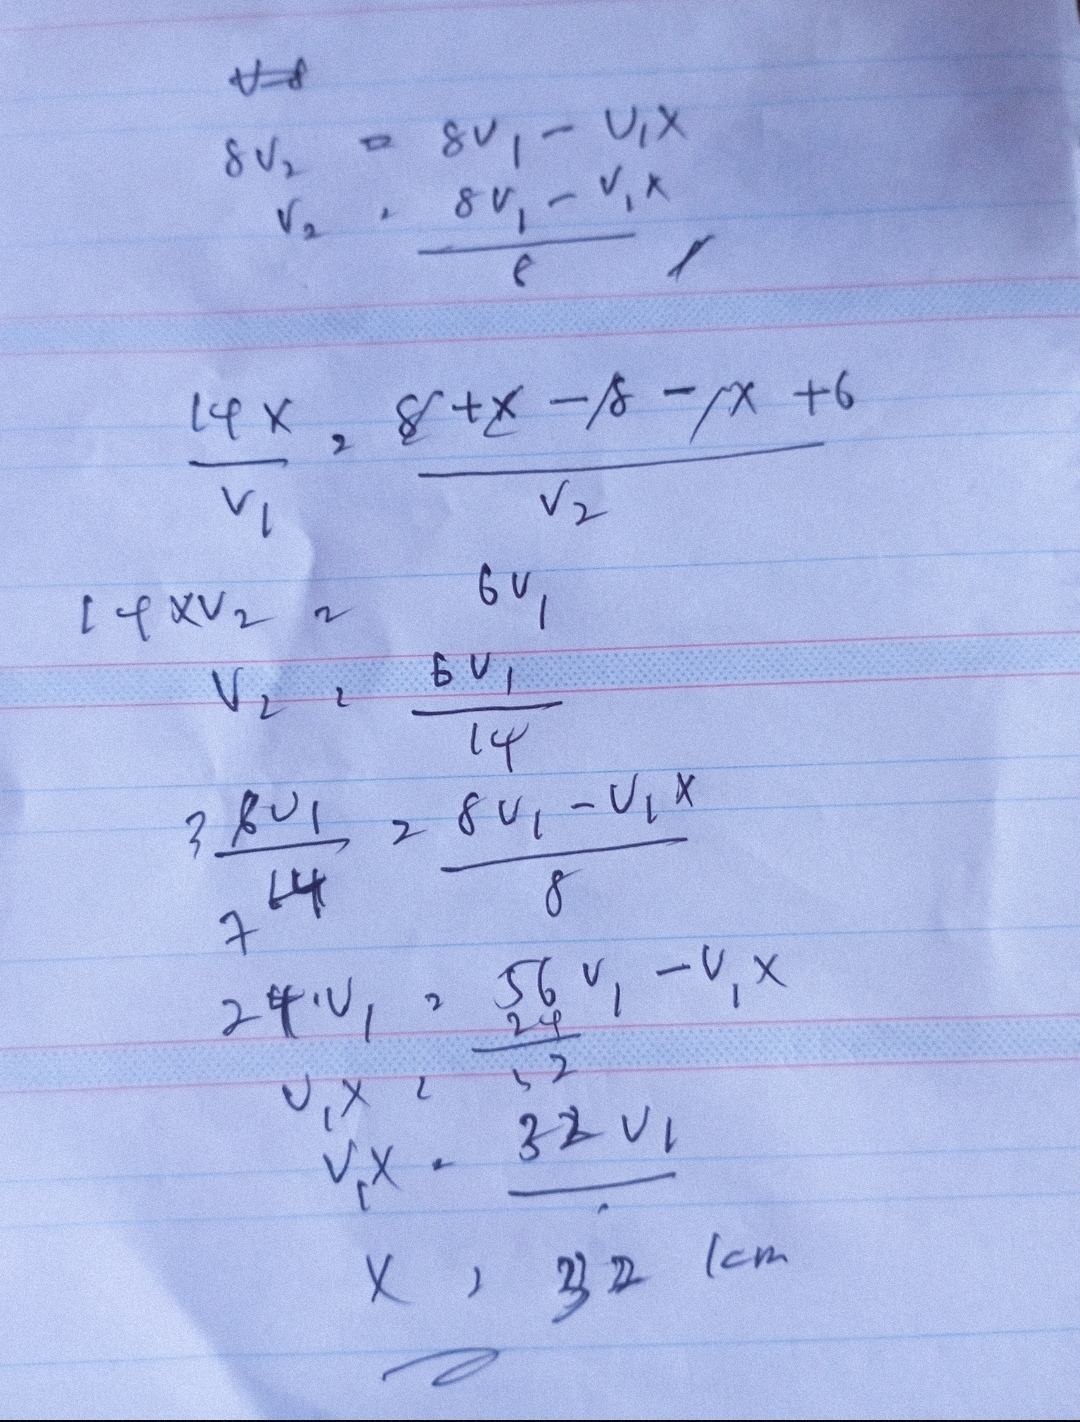 8V₂ = 8V₁ - V₁X
V₂ = 8V₁ - V₁X / 8
14X / V₁ = 8 + X - 8 - X + 6 / V₂
14XV₂ = 6V₁
V₂ = 6V₁ / 14
3 6V₁ / 14 7 = 8V₁ - V₁X / 8
24V₁ = 56V₁ - V₁X
24
V₁X = 32
V₁X = 32V₁
X = 32 km